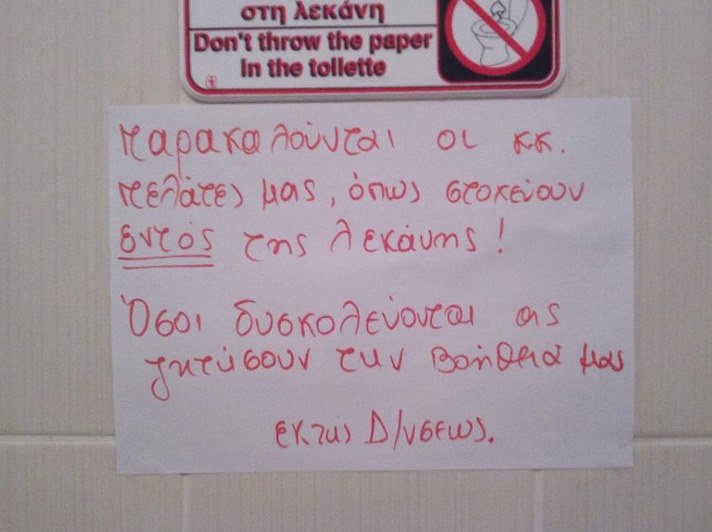 στη λεκάνη
Don't throw the paper
In the toilette
παρακαλούνται οι κκ.
πελάτες μας, όπως στοχεύουν
εντός της λεκάνης!
Όσοι δυσκολεύονται ας
ζητήσουν την βοήθεια μας
εκ της Δ/νσεως.